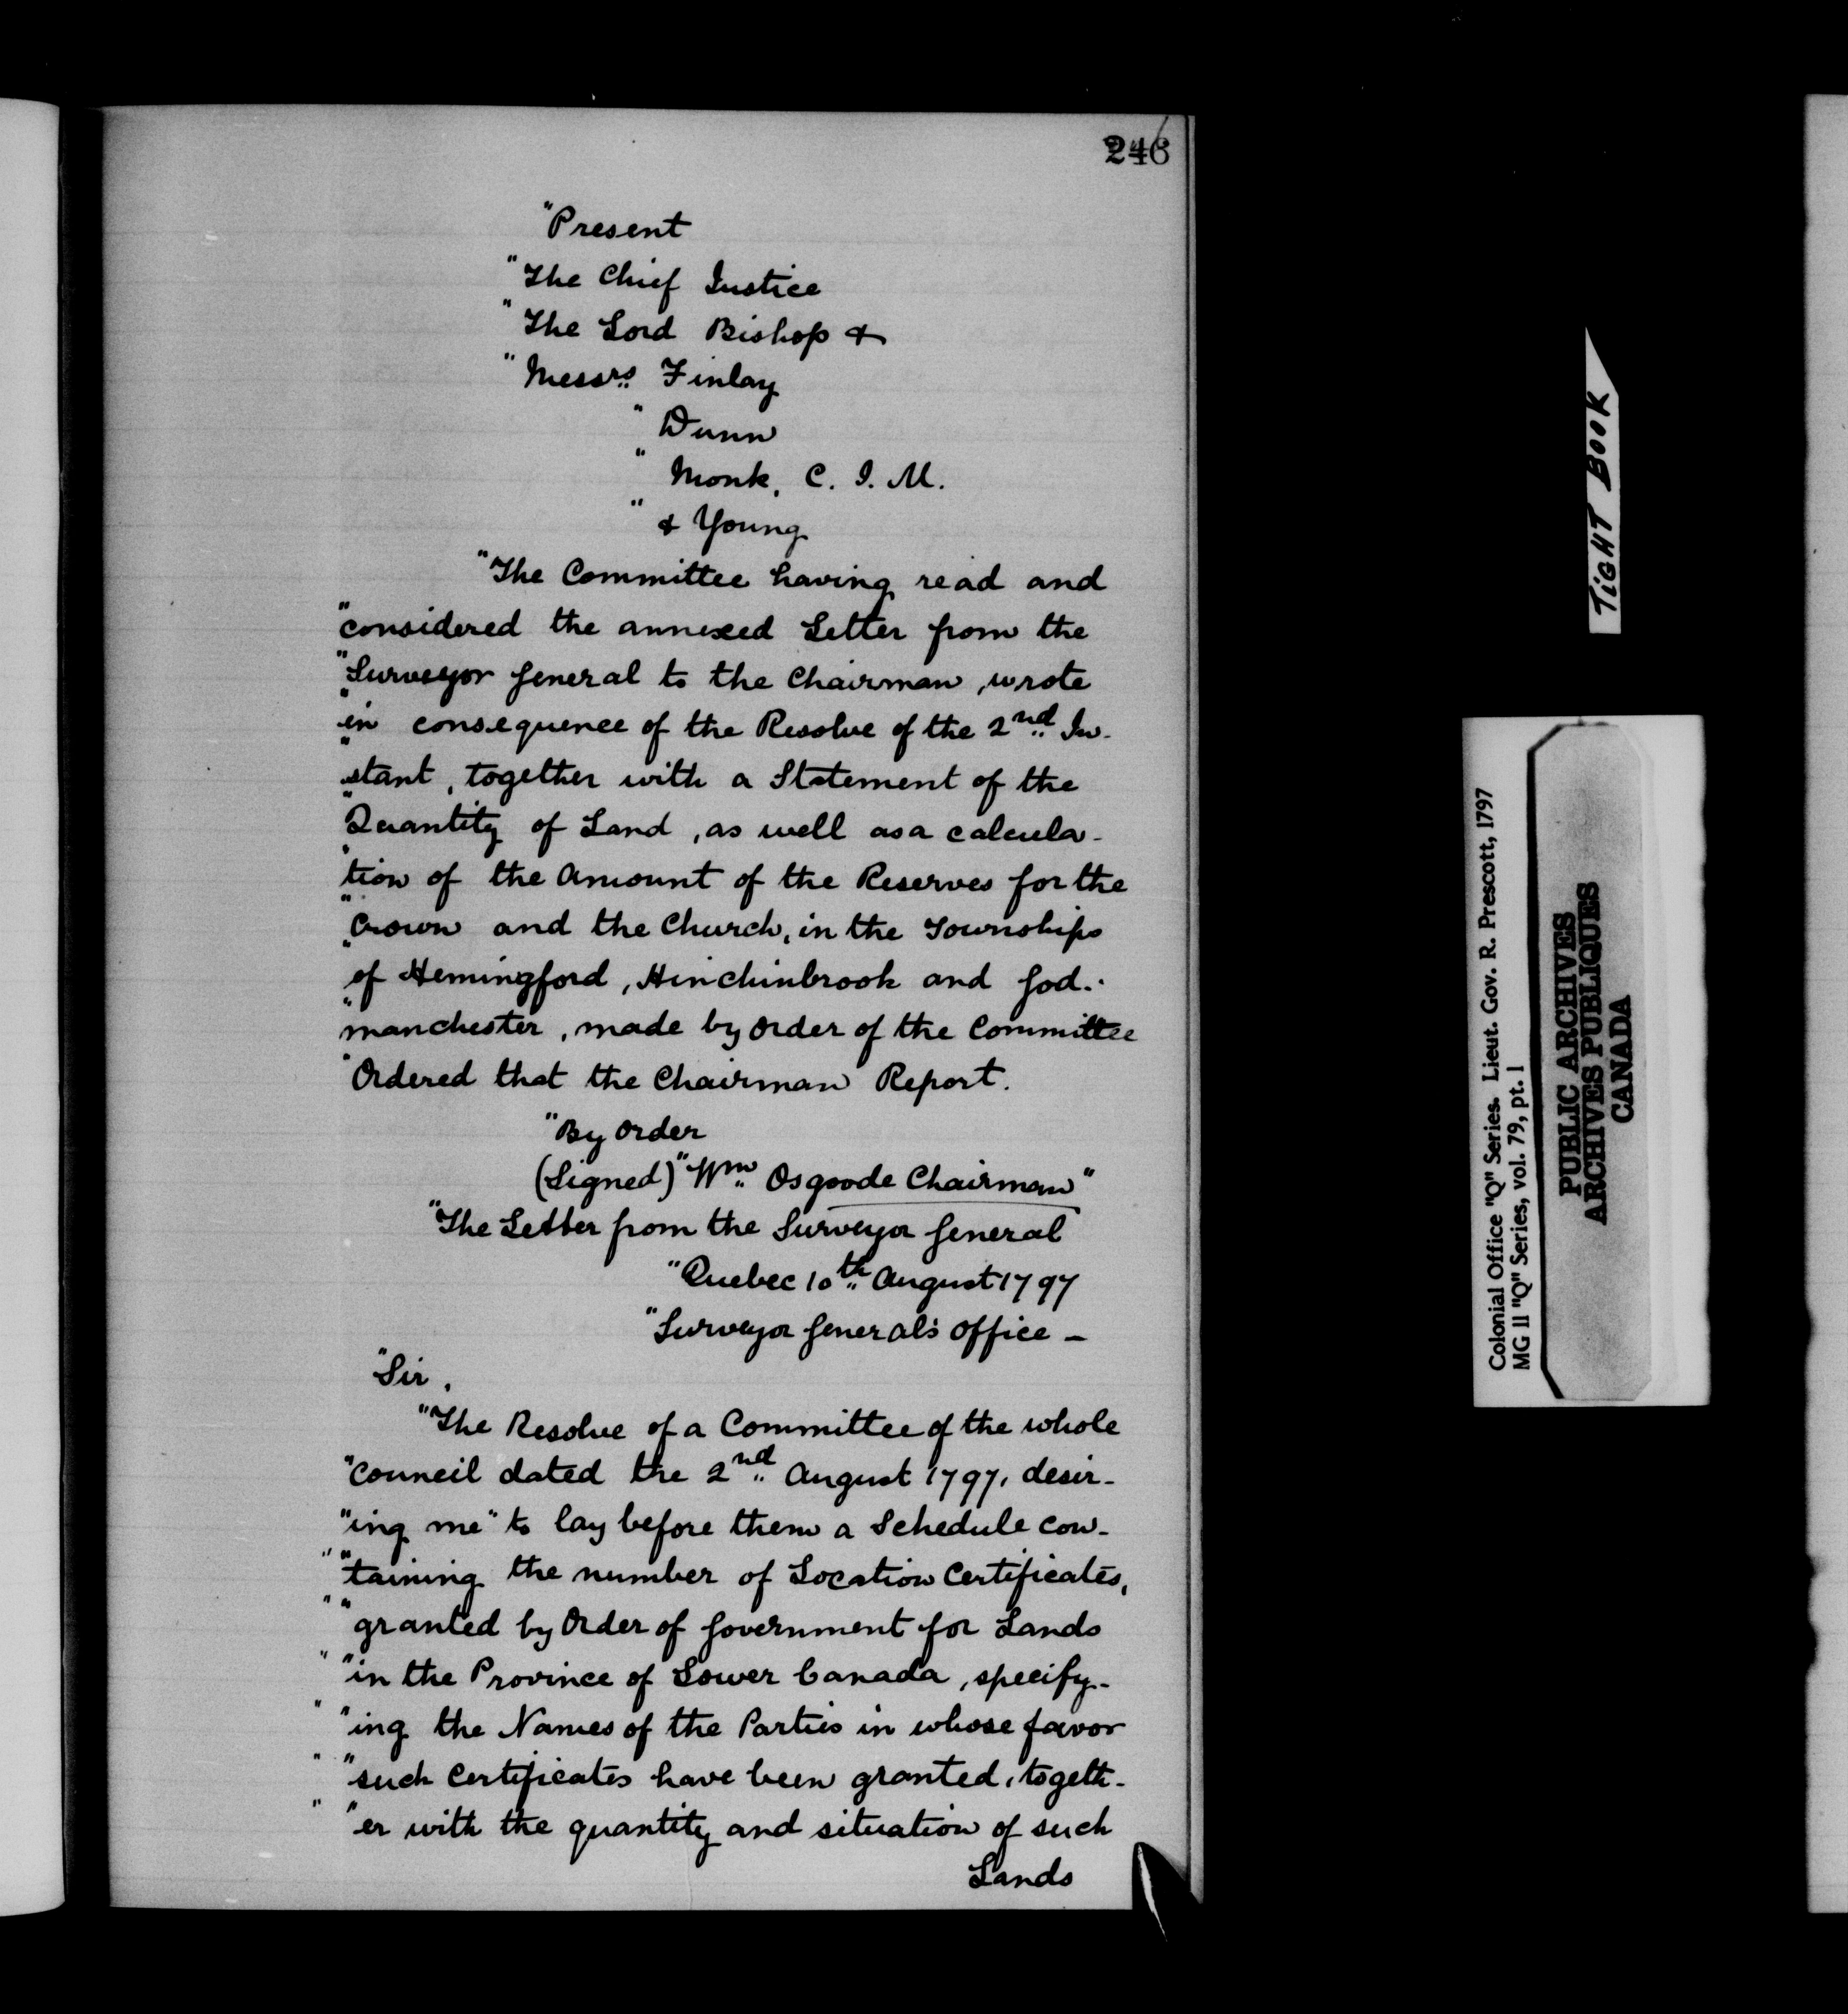 246
"Present
"The Chief Justice
"The Lord Bishop &
"Messrs. Finlay
" Dunn
" Monk, C. J. M.
" & Young
"The Committee having read and
"considered the annexed Letter from the
"Surveyor General to the Chairman, wrote
"in consequence of the Resolve of the 2nd. In-
"stant, together with a Statement of the
"Quantity of Land, as well as a calcula-
"tion of the Amount of the Reserves for the
"Crown and the Church, in the Townships
"of Hemingford, Hinchinbrook and God-
"manchester, made by Order of the Committee
"Ordered that the Chairman Report.
"By Order
(Signed) "Wm. Osgoode Chairman"
"The Letter from the Surveyor General
"Quebec 10th. August 1797
"Surveyor General's Office -
"Sir,
"The Resolve of a Committee of the whole
"Council dated the 2nd. August 1797, desir-
"ing me "to lay before them a Schedule con-
" "taining the number of Location Certificates,
" "granted by Order of Government for Lands
" "in the Province of Lower Canada, specify-
" "ing the Names of the Parties in whose favor
" "such Certificates have been granted, togeth-
" "er with the quantity and situation of such
Lands
TIGHT BOOK
Colonial Office "Q" Series. Lieut. Gov. R. Prescott, 1797
MG 11 "Q" Series, vol. 79, pt. 1
PUBLIC ARCHIVES
ARCHIVES PUBLIQUES
CANADA